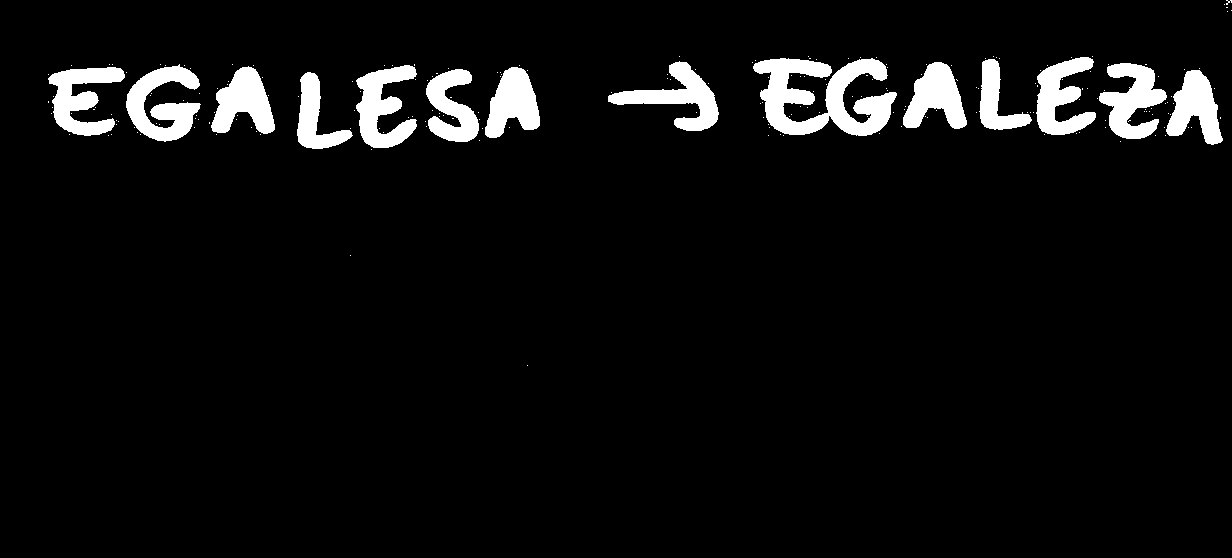 EGALESA → EGALEZA